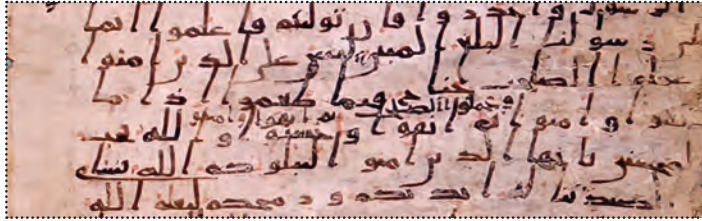 الرسول واحذروا فان توليتم فاعلموا انما
على رسولنا البلغ المبين ليس على الذين امنوا
وعملوا الصلحت جنح فيما طعموا اذا ما
اتقوا وامنوا وعملوا الصلحت ثم اتقوا وامنوا ثم اتقوا واحسنوا والله يحب
المحسنين يايها الذين امنوا ليبلونكم الله بشاى
الصيد تناله ايديكم ورمحكم ليعلم الله